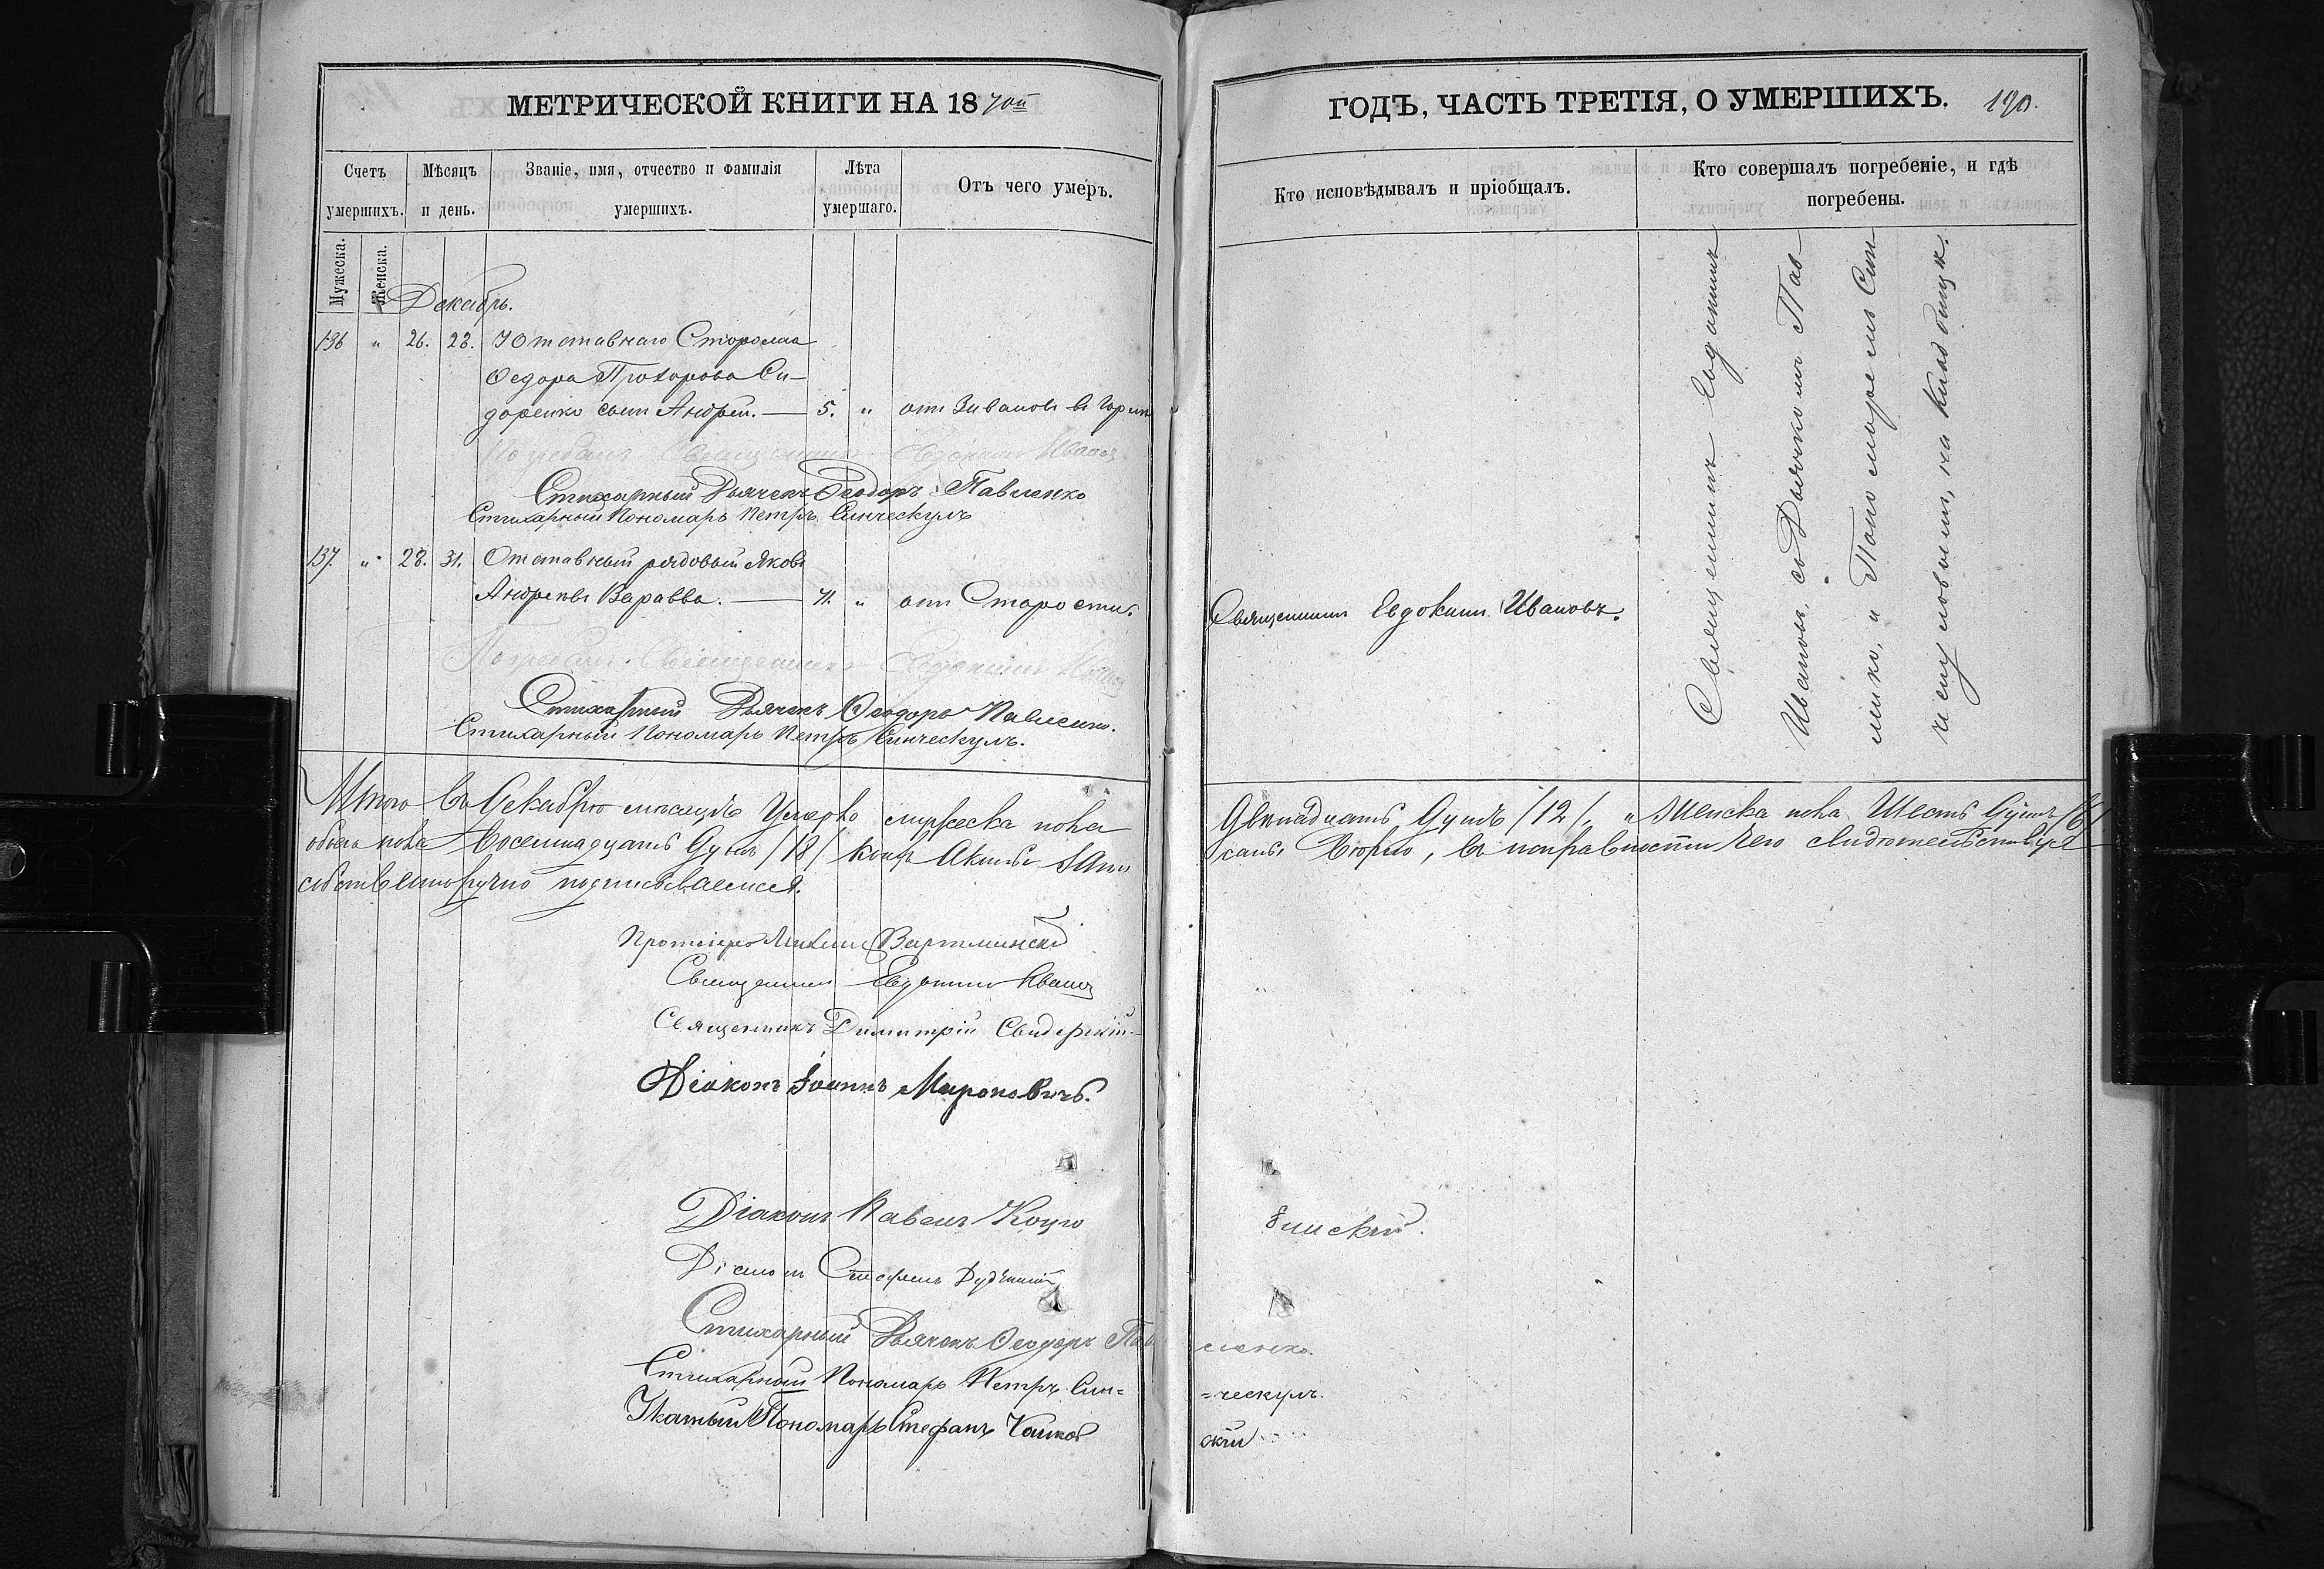 МЕТРИЧЕСКОЙ КНИГИ НА 1870й
ГОДЪ, ЧАСТЬ ТРЕТІЯ, О УМЕРШИХЪ. 190.
Счетъ умершихъ.
Мѣсяцъ и день.
Званіе, имя, отчество и фамилія умершихъ.
Лѣта умершаго.
Отъ чего умеръ.
Кто исповѣдывалъ и пріобщалъ.
Кто совершалъ погребеніе, и гдѣ погребены.
Мужеска.
Женска.
Декабрь.
136 " 26. 28. У Отставнаго Сторожа
Ѳедора Прохорова Си-
доренко сынъ Андрей. — 5. " отъ
Погребалъ Священникъ Евдокимъ Ивановъ
Стихарный Дьячекъ Ѳеодоръ Павленко
Стихарный Пономарь Петръ Синческулъ
137. " 28. 31. Отставный рядовый Яковъ
Андреевъ Варавва. — 71. " отъ Старости.
Священникъ Евдокимъ Ивановъ.
Погребалъ Священникъ Евдокимъ Ивановъ
Стихарный Дьячекъ Ѳеодоръ Павленко.
Стихарный Пономарь Петръ Синческулъ.
Священникъ Евдокимъ
Ивановъ, съ Дьячкомъ Пав
ленко, и Пономаремъ Син
ческуловымъ, на кладбищѣ.
Итого въ Декабрѣ мѣсяцѣ Умерло мужеска пола Двѣнадцать Душъ /12/, а Женска пола Шесть Душъ /6/
обоего пола Восемнадцать Душъ /18/ коихъ Акты запи саны вѣрно, въ исправности чего свидѣтельствуя
собственноручно подписываемся.
Протоіерей Михаилъ
Священникъ Евдокимъ Ивановъ
Священникъ Димитрій Свидерскій
Діаконъ Іоаннъ Мироновичъ.
Діаконъ Павелъ
Діаконъ Стефанъ
Стихарный Дьячекъ Ѳеодоръ Пав ленко.
Стихарный Пономарь Петръ Син= =ческулъ.
Указный Пономарь Стефанъ Чайков скій